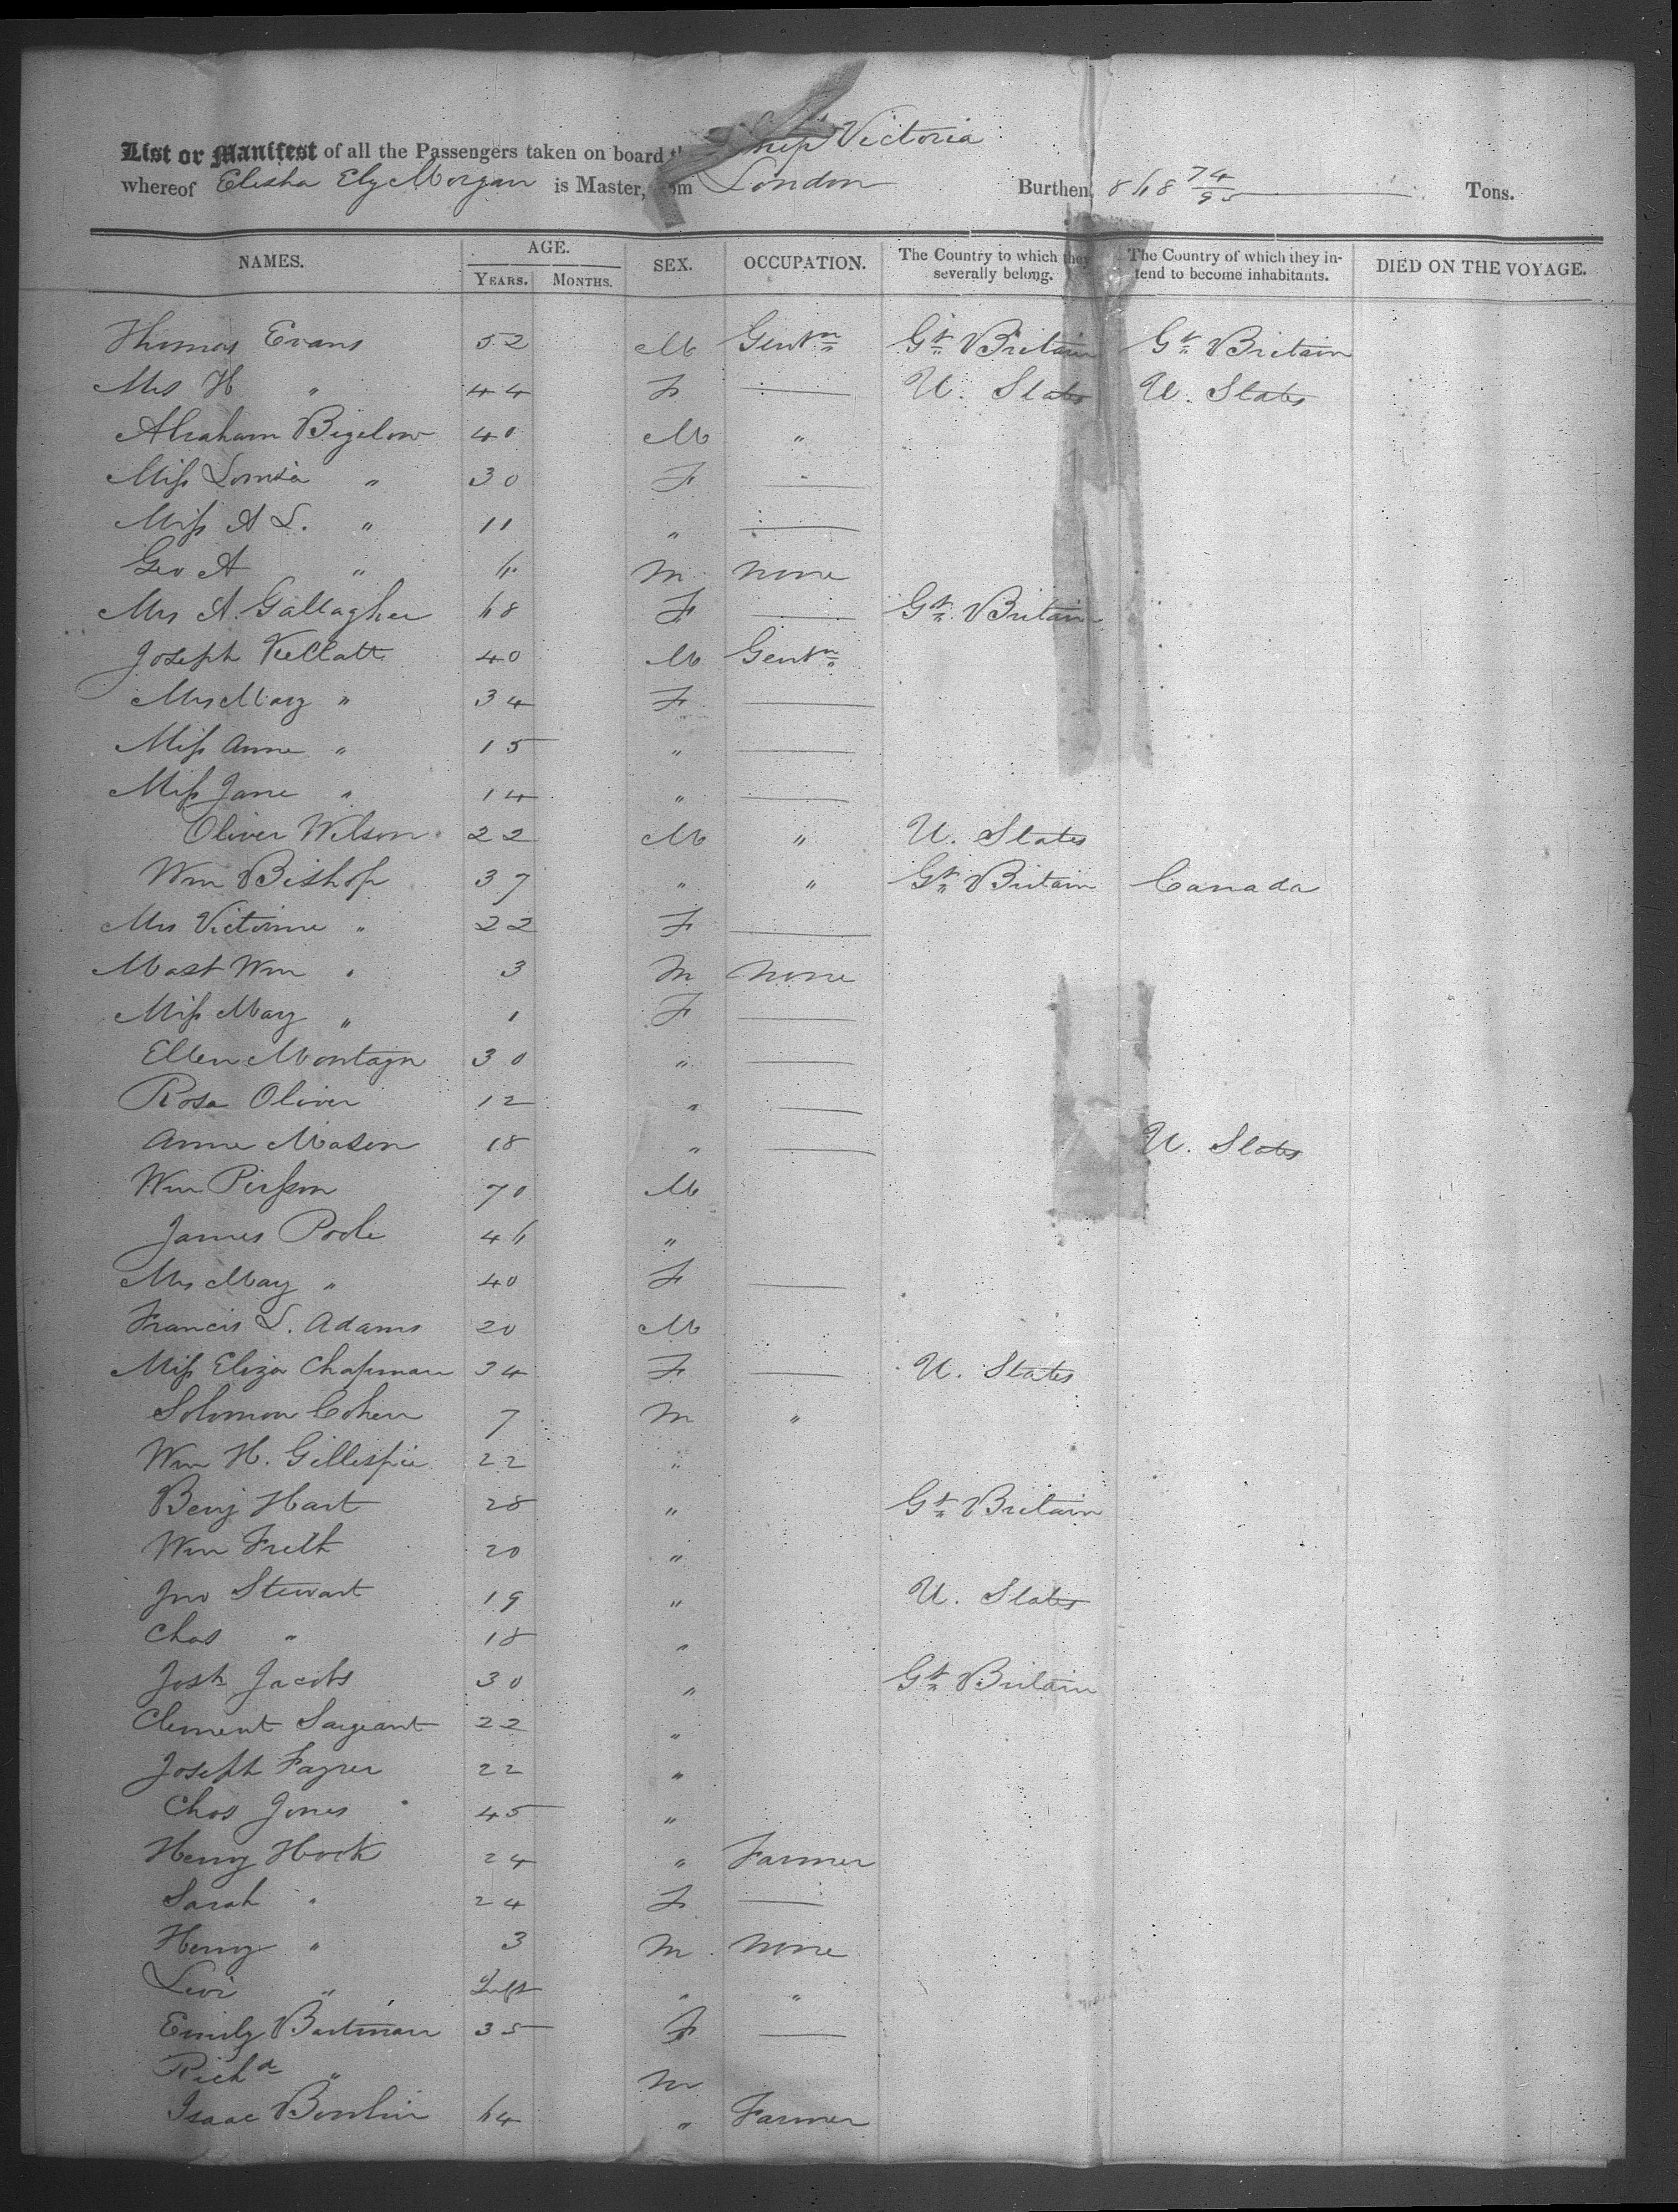 List or Manifest of all the Passengers taken on board the Ship Victoria
whereof Elisha Ely Morgan is Master, from London Burthen, 868 74/95 Tons.
NAMES. AGE. YEARS. MONTHS. SEX. OCCUPATION. The Country to which they severally belong. The Country of which they intend to become inhabitants. DIED ON THE VOYAGE.
Thomas Evans 52 M Gentn Gt Britain Gt Britain
Mrs H " 44 F — U. States U. States
Abraham Bigelow 40 M "
Miss Louisa " 30 F —
Miss A L. " 11 " —
Geo A " 6 M none
Mrs A. Gallagher 68 F — Gt Britain
Joseph 40 M Gentn
Mrs Mary " 34 F —
Miss Anne " 15 " —
Miss Jane " 14 " —
Oliver Wilson 22 M " U. States
Wm Bishop 37 " " Gt Britain Canada
Mrs Victorine " 22 F —
Mast Wm " 3 M none
Miss Mary " 1 F —
Ellen Montagu 30 " —
Rosa Oliver 12 " —
Anne Mason 18 " — U. States
Wm Pirsson 70 M
James Poole 46 "
Mrs Mary " 40 F —
Francis L. Adams 20 M
Miss Eliza Chapman 34 F — U. States
Solomon Cohen 7 M "
Wm H. Gillespie 22 "
Benj Hart 28 " Gt Britain
Wm Frith 20 "
Jno Stewart 19 " U. States
Chas " 18 "
Josh Jacobs 30 " Gt Britain
Clement Sargeant 22 "
Joseph Fayrer 22 "
Chas Jones 45 "
Henry Hook 24 " Farmer
Sarah " 24 F —
Henry " 3 M none
Levi " Inft " "
Emily Bartman 35 F —
Richd " M
Isaac 64 " Farmer